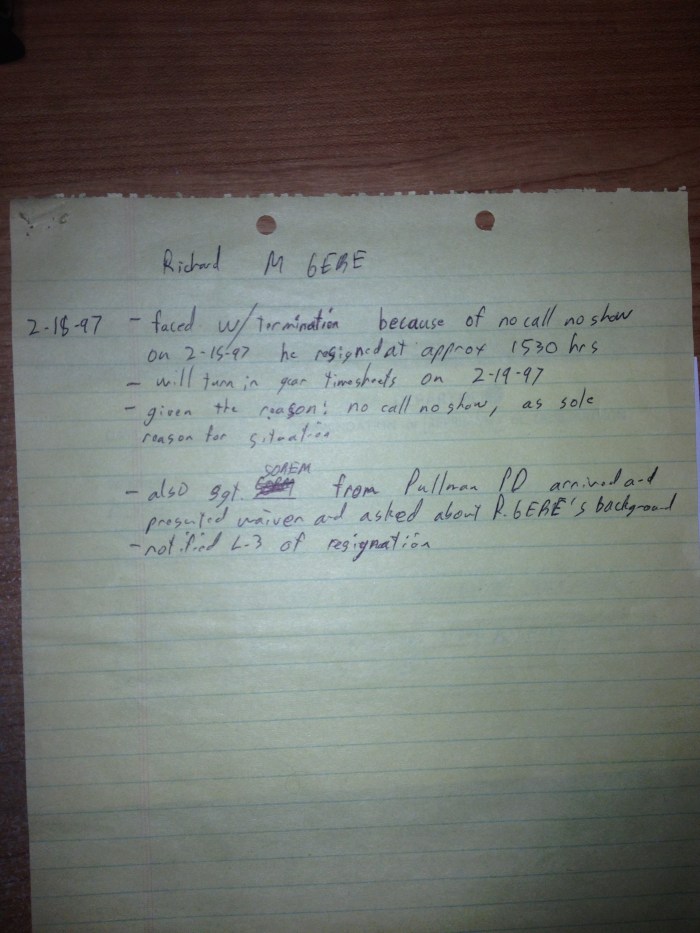 Richard M GERE
2-18-97 - faced w/ termination because of no call no show
on 2-15-97 he resigned at approx 1530 hrs
- will turn in gear timesheets on 2-19-97
- given the reason: no call no show, as sole
reason for situation
SOREM
- also sgt. from Pullman PD arrived and
presented waiver and asked about R. GERE's background
- notified L-3 of resignation